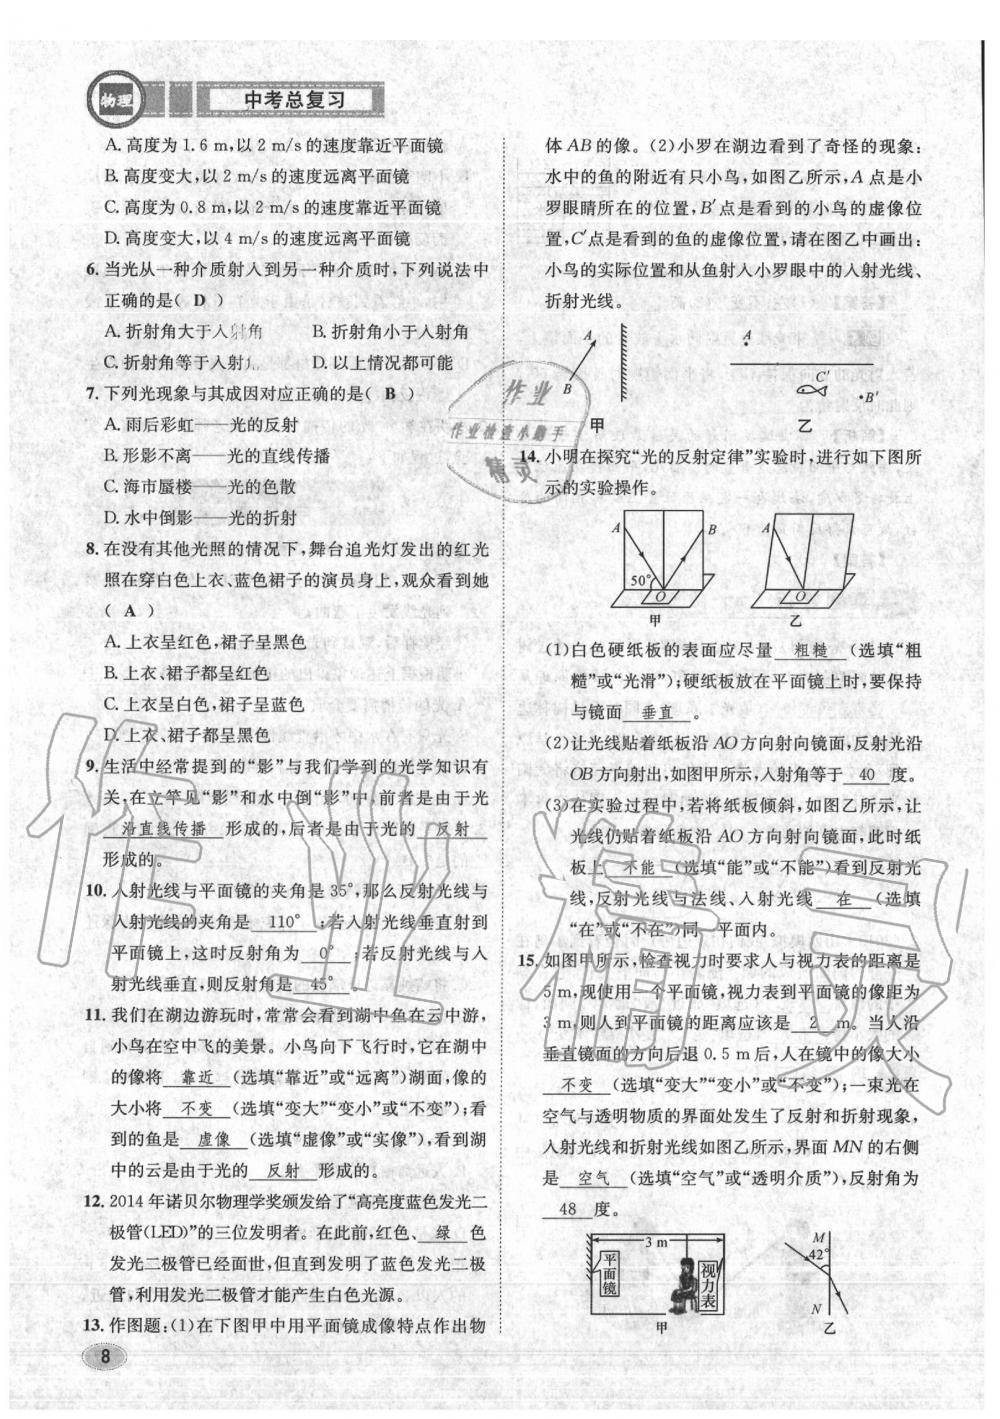 物理
中考总复习
A. 高度为 1.6 m,以 2 m/s 的速度靠近平面镜
B. 高度变大,以 2 m/s 的速度远离平面镜
C. 高度为 0.8 m,以 2 m/s 的速度靠近平面镜
D. 高度变大,以 4 m/s 的速度远离平面镜
6. 当光从一种介质射入到另一种介质时,下列说法中
正确的是( D )
A. 折射角大于入射角 B. 折射角小于入射角
C. 折射角等于入射角 D. 以上情况都可能
7. 下列光现象与其成因对应正确的是( B )
A. 雨后彩虹——光的反射
B. 形影不离——光的直线传播
C. 海市蜃楼——光的色散
D. 水中倒影——光的折射
8. 在没有其他光照的情况下,舞台追光灯发出的红光
照在穿白色上衣、蓝色裙子的演员身上,观众看到她
( A )
A. 上衣呈红色,裙子呈黑色
B. 上衣、裙子都呈红色
C. 上衣呈白色,裙子呈蓝色
D. 上衣、裙子都呈黑色
9. 生活中经常提到的“影”与我们学到的光学知识有
关,在立竿见“影”和水中倒“影”中,前者是由于光
沿直线传播 形成的,后者是由于光的 反射
形成的。
10. 入射光线与平面镜的夹角是 35°,那么反射光线与
入射光线的夹角是 110° ;若入射光线垂直射到
平面镜上,这时反射角为 0° ;若反射光线与入
射光线垂直,则反射角是 45° 。
11. 我们在湖边游玩时,常常会看到湖中鱼在云中游,
小鸟在空中飞的美景。小鸟向下飞行时,它在湖中
的像将 靠近 (选填“靠近”或“远离”)湖面,像的
大小将 不变 (选填“变大”“变小”或“不变”);看
到的鱼是 虚像 (选填“虚像”或“实像”),看到湖
中的云是由于光的 反射 形成的。
12. 2014 年诺贝尔物理学奖颁发给了“高亮度蓝色发光二
极管(LED)”的三位发明者。在此前,红色、 绿 色
发光二极管已经面世,但直到发明了蓝色发光二极
管,利用发光二极管才能产生白色光源。
13. 作图题:(1)在下图甲中用平面镜成像特点作出物
8
体 AB 的像。(2)小罗在湖边看到了奇怪的现象:
水中的鱼的附近有只小鸟,如图乙所示,A 点是小
罗眼睛所在的位置,B′点是看到的小鸟的虚像位
置,C′点是看到的鱼的虚像位置,请在图乙中画出:
小鸟的实际位置和从鱼射入小罗眼中的入射光线、
折射光线。
A
B
甲
A
C′
B′
乙
作业
作业检查小助手
精灵
14. 小明在探究“光的反射定律”实验时,进行如下图所
示的实验操作。
A
B
50°
O
甲
A
O
乙
(1)白色硬纸板的表面应尽量 粗糙 (选填“粗
糙”或“光滑”);硬纸板放在平面镜上时,要保持
与镜面 垂直 。
(2)让光线贴着纸板沿 AO 方向射向镜面,反射光沿
OB 方向射出,如图甲所示,入射角等于 40 度。
(3)在实验过程中,若将纸板倾斜,如图乙所示,让
光线仍贴着纸板沿 AO 方向射向镜面,此时纸
板上 不能 (选填“能”或“不能”)看到反射光
线,反射光线与法线、入射光线 在 (选填
“在”或“不在”)同一平面内。
15. 如图甲所示,检查视力时要求人与视力表的距离是
5 m,现使用一个平面镜,视力表到平面镜的像距为
3 m,则人到平面镜的距离应该是 2 m。当人沿
垂直镜面的方向后退 0.5 m 后,人在镜中的像大小
不变 (选填“变大”“变小”或“不变”);一束光在
空气与透明物质的界面处发生了反射和折射现象,
入射光线和折射光线如图乙所示,界面 MN 的右侧
是 空气 (选填“空气”或“透明介质”),反射角为
48 度。
3 m
平面镜
视力表
甲
M
42°
N
乙
作业精灵